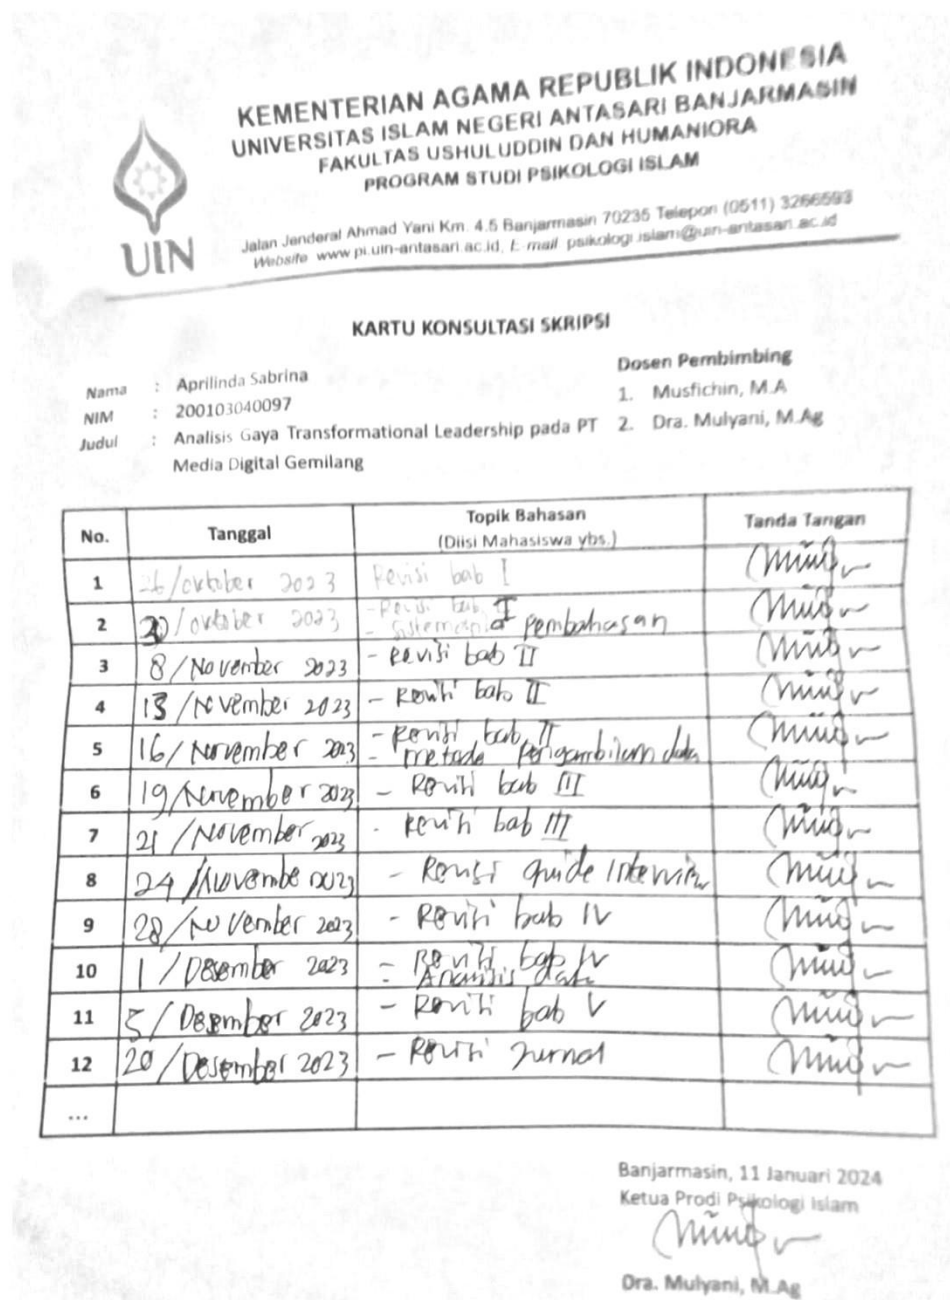 KEMENTERIAN AGAMA REPUBLIK INDONESIA
UNIVERSITAS ISLAM NEGERI ANTASARI BANJARMASIN
FAKULTAS USHULUDDIN DAN HUMANIORA
PROGRAM STUDI PSIKOLOGI ISLAM
Jalan Jenderal Ahmad Yani Km. 4.5 Banjarmasin 70235 Telepon (0511) 3266593
Website www.pi.uin-antasari.ac.id, E-mail psikologi.islam@uin-antasari.ac.id
UIN
KARTU KONSULTASI SKRIPSI
Nama : Aprilinda Sabrina
NIM : 200103040097
Judul : Analisis Gaya Transformational Leadership pada PT
Media Digital Gemilang
Dosen Pembimbing
1. Musfichin, M.A
2. Dra. Mulyani, M.Ag
No. Tanggal Topik Bahasan Tanda Tangan
(Diisi Mahasiswa ybs.)
1 26/oktober 2023 Revisi bab I
2 30/oktober 2023 - Revisi bab I
- pembahasan
3 8/November 2023 - Revisi bab II
4 13/November 2023 - Revisi bab II
5 16/November 2023 - Revisi bab II
- metode pengambilan data
6 19/November 2023 - Revisi bab III
7 21/November 2023 - Revisi bab III
8 24/November 2023 - Revisi guide interview
9 28/November 2023 - Revisi bab IV
10 1/Desember 2023 - Revisi bab IV
- Analisis data
11 5/Desember 2023 - Revisi bab V
12 20/Desember 2023 - Revisi Jurnal
...
Banjarmasin, 11 Januari 2024
Ketua Prodi Psikologi Islam
Dra. Mulyani, M.Ag